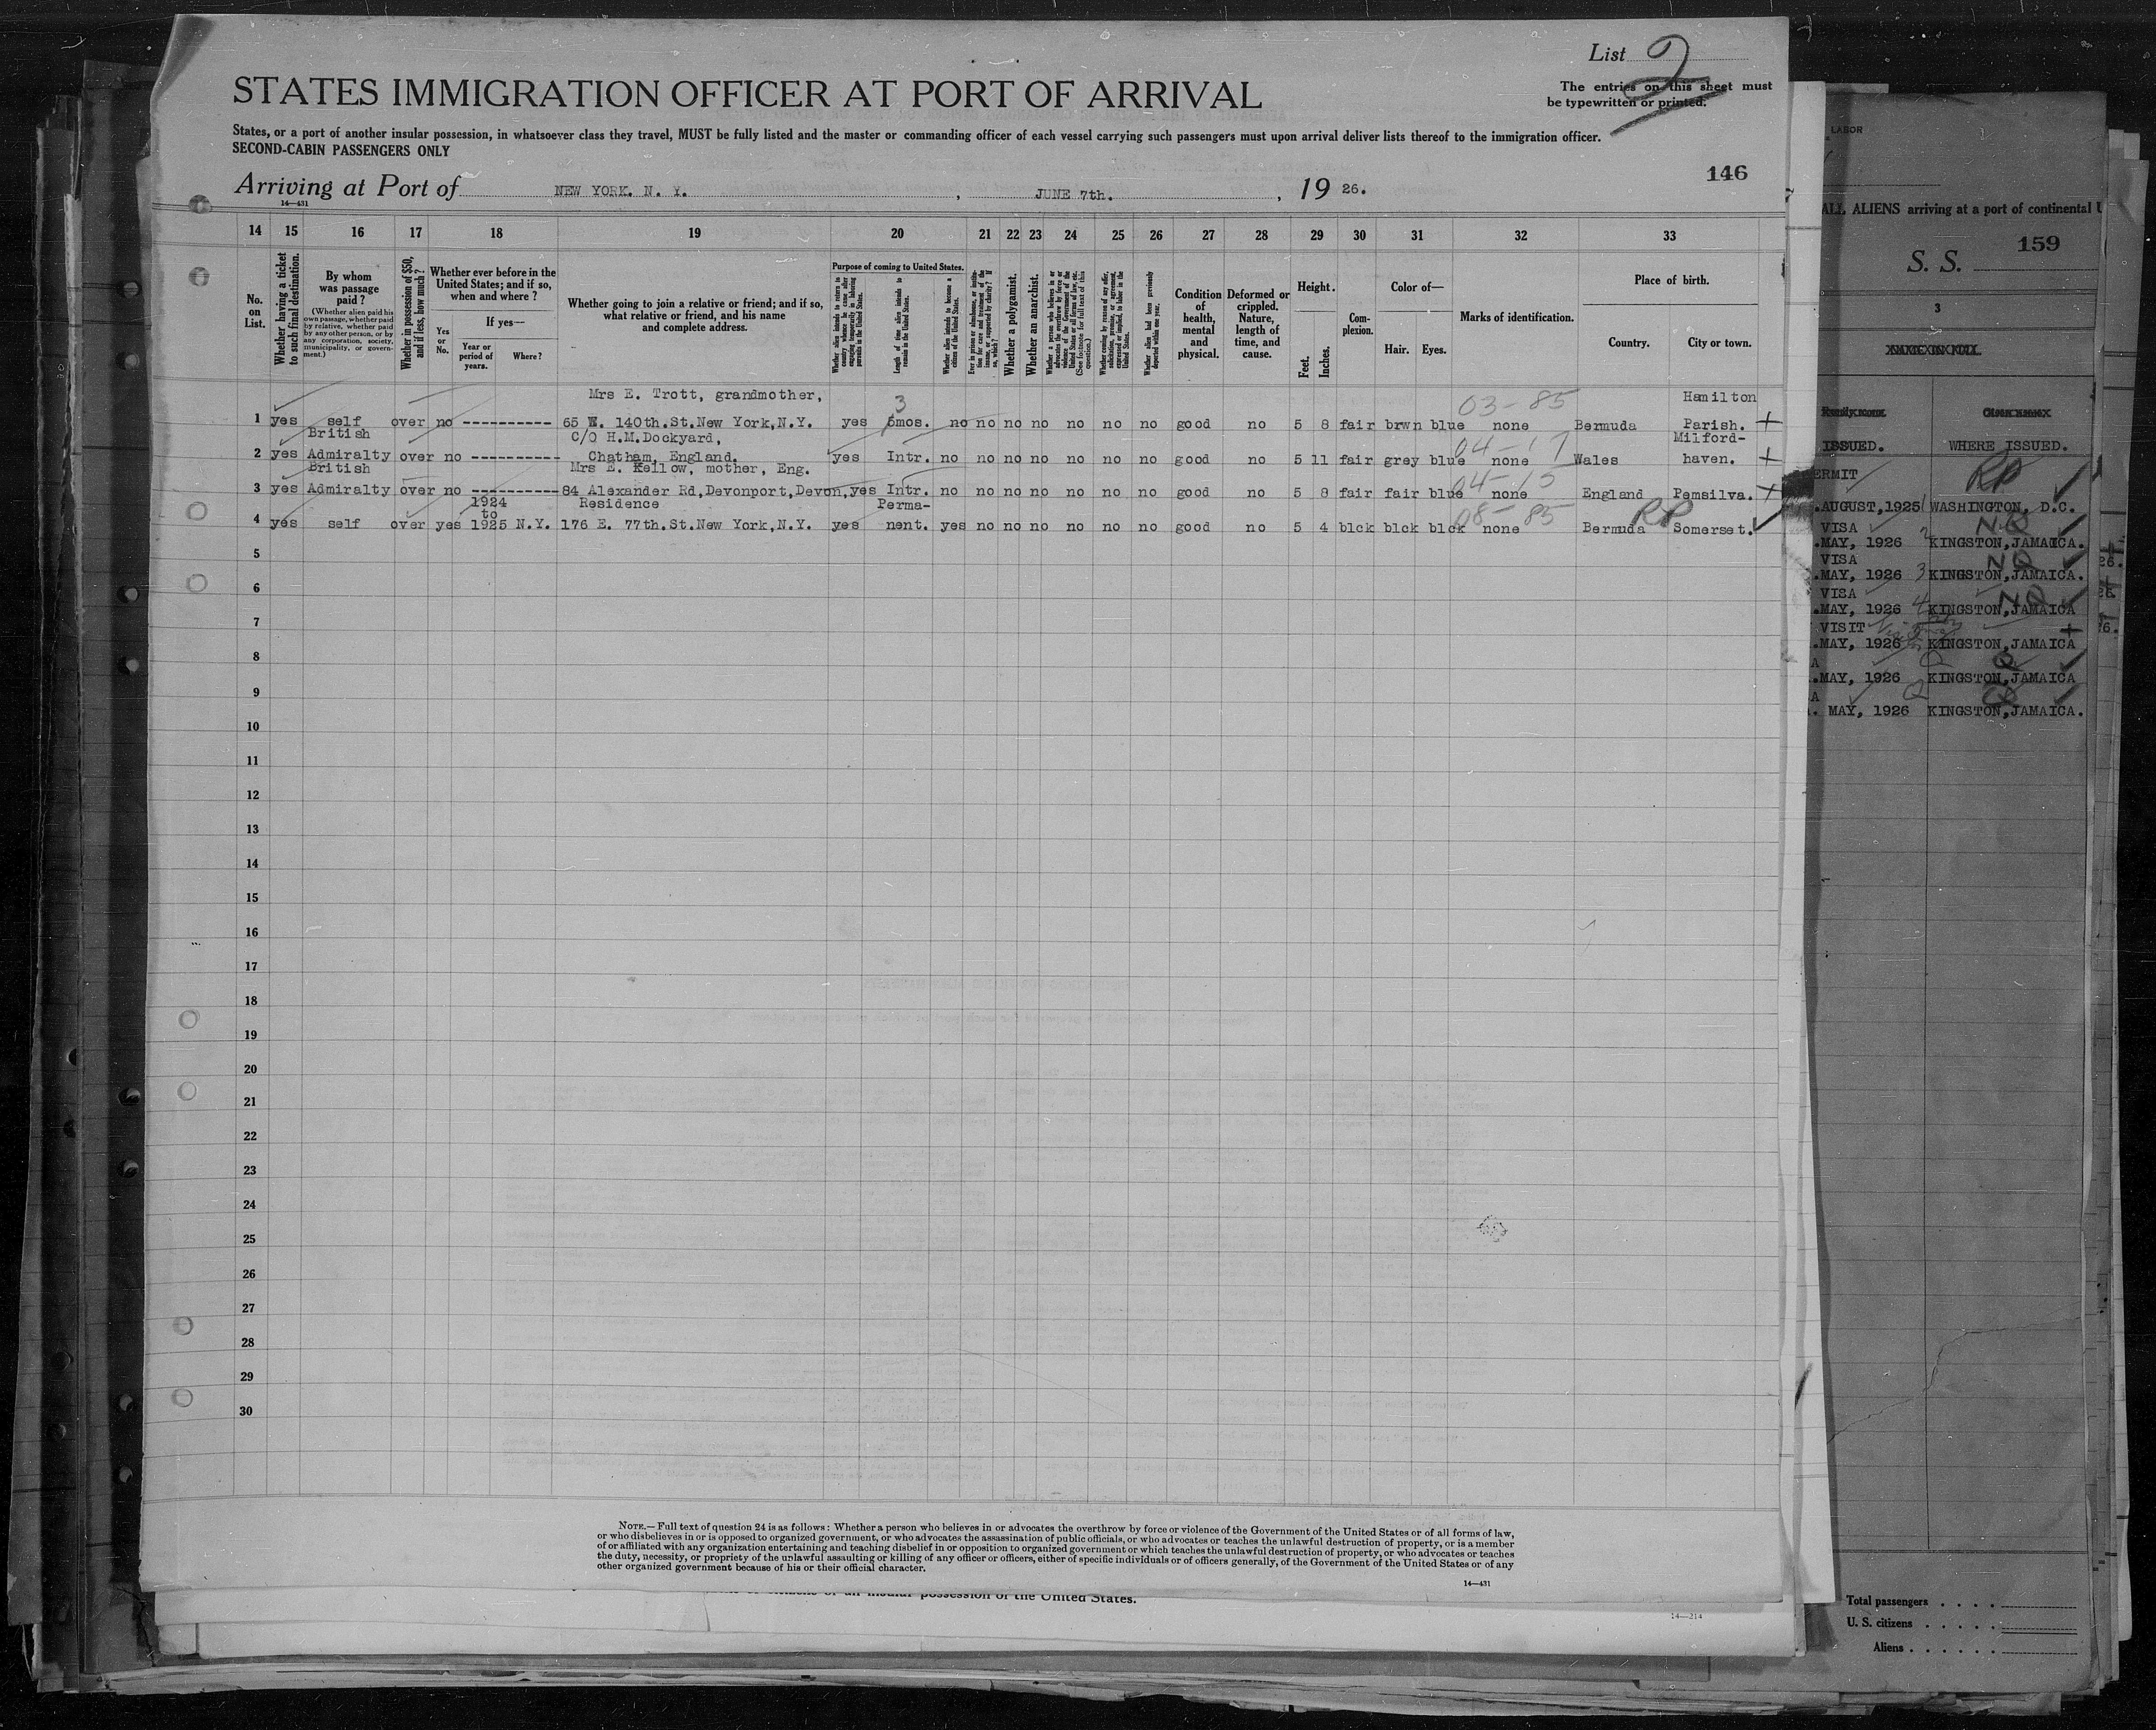 List 2
STATES IMMIGRATION OFFICER AT PORT OF ARRIVAL
The entries on this sheet must
be typewritten or printed.
States, or a port of another insular possession, in whatsoever class they travel, MUST be fully listed and the master or commanding officer of each vessel carrying such passengers must upon arrival deliver lists thereof to the immigration officer.
SECOND-CABIN PASSENGERS ONLY
146
Arriving at Port of NEW YORK. N. Y. , JUNE 7th. , 19 26.
14—431
14 15 16 17 18 19 20 21 22 23 24 25 26 27 28 29 30 31 32 33
No. on List.
Whether having a ticket to such final destination.
By whom was passage paid?
(Whether alien paid his own passage, whether paid by relative, whether paid by any other person, or by any corporation, society, municipality, or government.)
Whether in possession of $50, and if less, how much?
Whether ever before in the United States; and if so, when and where?
Yes or No.
If yes—
Year or period of years.
Where?
Whether going to join a relative or friend; and if so, what relative or friend, and his name and complete address.
Purpose of coming to United States.
Whether alien intends to return to country whence he came after engaging temporarily in laboring pursuits in the United States.
Length of time alien intends to remain in the United States.
Whether alien intends to become a citizen of the United States.
Ever in prison or almshouse, or institution for care and treatment of the insane, or supported by charity? If so, which?
Whether a polygamist.
Whether an anarchist.
Whether a person who believes in or advocates the overthrow by force or violence of the Government of the United States or all forms of law, etc. (See footnote for full text of this question.)
Whether coming by reason of any offer, solicitation, promise, or agreement, expressed or implied, to labor in the United States.
Whether alien had been previously deported within one year.
Condition of health, mental and physical.
Deformed or crippled. Nature, length of time, and cause.
Height.
Feet. Inches.
Complexion.
Color of—
Hair. Eyes.
Marks of identification.
Place of birth.
Country. City or town.
Mrs E. Trott, grandmother, 3 03-85 Hamilton
1 yes self over no ---------- 65 W. 140th.St.New York,N.Y. yes 6mos. no no no no no no no good no 5 8 fair brwn blue none Bermuda Parish. +
British C/O H.M.Dockyard, 04-17 Milford-
2 yes Admiralty over no ---------- Chatham, England. yes Intr. no no no no no no no good no 5 11 fair grey blue none Wales haven. +
British Mrs E. Kellow, mother, Eng. 04-15
3 yes Admiralty over no ---------- 84 Alexander Rd,Devonport,Devon,yes Intr. no no no no no no no good no 5 8 fair fair blue none England Pemsilva. +
1924 to Residence Perma- 08-85 RP
4 yes self over yes 1925 N.Y. 176 E. 77th.St.New York,N.Y. yes nent. yes no no no no no no good no 5 4 blck blck blck none Bermuda Somerset.
5
6
7
8
9
10
11
12
13
14
15
16
17
18
19
20
21
22
23
24
25
26
27
28
29
30
NOTE.—Full text of question 24 is as follows: Whether a person who believes in or advocates the overthrow by force or violence of the Government of the United States or of all forms of law,
or who disbelieves in or is opposed to organized government, or who advocates the assassination of public officials, or who advocates or teaches the unlawful destruction of property, or is a member
of or affiliated with any organization entertaining and teaching disbelief in or opposition to organized government or which teaches the unlawful destruction of property, or who advocates or teaches
the duty, necessity, or propriety of the unlawful assaulting or killing of any officer or officers, either of specific individuals or of officers generally, of the Government of the United States or of any
other organized government because of his or their official character.
14—431
possession of the United States.
14—214
LABOR
ALL ALIENS arriving at a port of continental U
159
S. S.
3
ISSUED. WHERE ISSUED.
ERMIT RP
.AUGUST,1925 1 WASHINGTON, D.C.
VISA NQ
.MAY, 1926 2 KINGSTON,JAMAICA.
VISA NQ
.MAY, 1926 3 KINGSTON,JAMAICA.
VISA NQ
.MAY, 1926 4 KINGSTON,JAMAICA
VISIT +
.MAY, 1926 KINGSTON,JAMAICA
A Q Q
.MAY, 1926 KINGSTON,JAMAICA
A Q
. MAY, 1926 KINGSTON,JAMAICA.
26.
26.
Total passengers
U. S. citizens
Aliens